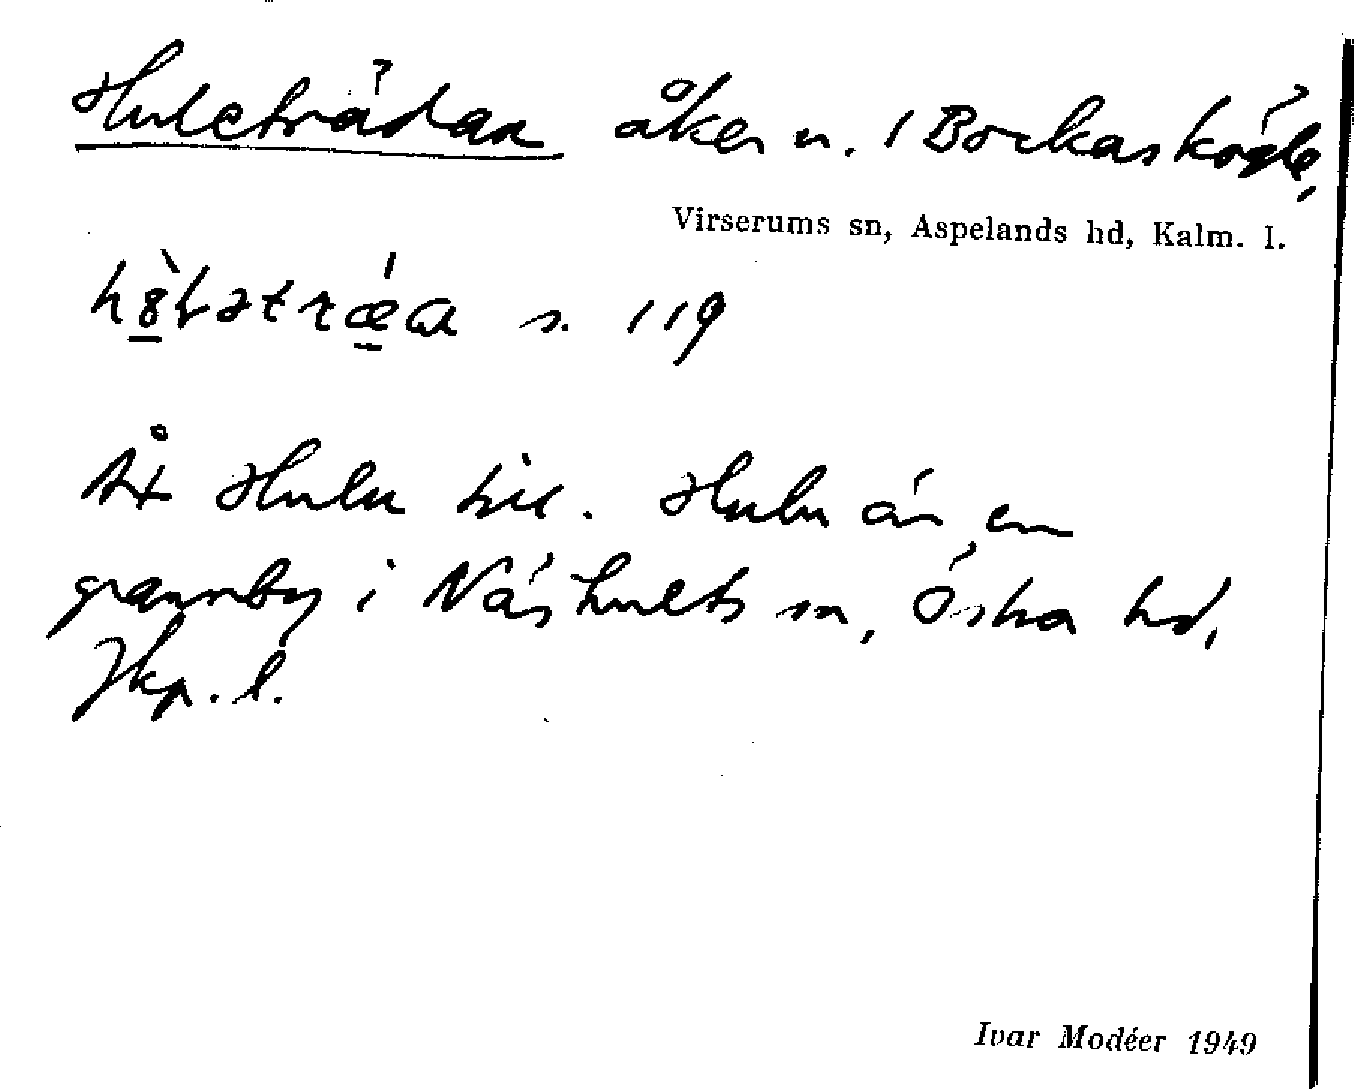 Huleträdan åker n. i Bockaskögle,
Virserums sn, Aspelands hd, Kalm. l.
s. 119
Åt Hulu till. Hulu är en
grannby i Näshults sn, Östra hd,
Jkp. l.
Ivar Modéer 1949